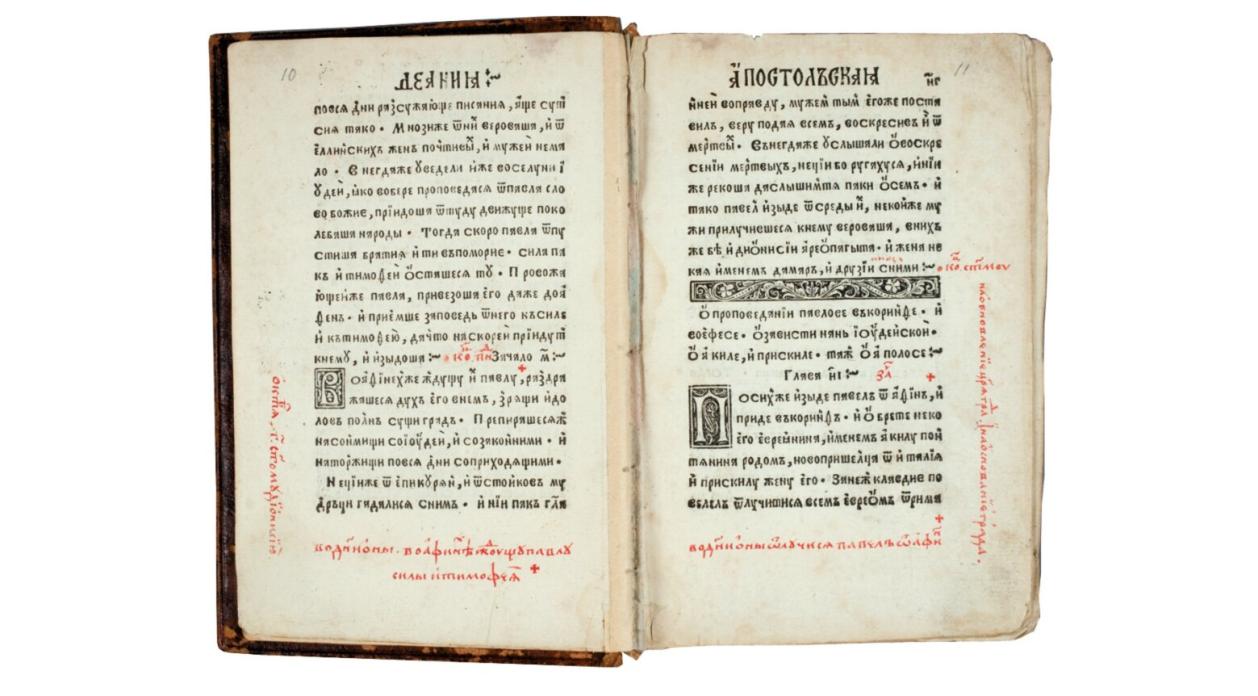 10
ДЕАНИꙖ
повсѧ дни разсужающе писания, аще сут
сия тако · Мнозиже ѿ ни вероваша, и ѿ
еллинскихъ женъ почтивы, и мужеи нема
ло · Внегдаже уведели иже воселуни і
удеи, яко вовере проповедася ѿпавла сло
во божие, приідоша ѿтуду движуще поко
лебаша народы · Тогда скоро павла ѿпу
стиша братия ити въпоморие · сила па
къ и тимоѳеи ѡсташеся ту · Провожа
ющеиже павла, привезоша его даже доа
ѳенъ · и приемше заповедь ѿнего къ силе
и къ тимоѳею, да что наскореи приідут
кнему, и изыдоша Зачало м҃
Воаѳинехже ждущу и павлу, раздра
жашеся духъ его внемъ, зрящи идо
ловъ полнъ сущи градъ · Препирашесяж
насонмищи соіоудеи, и созаконними · и
наторжищи повся дни соприходящими ·
Нецииже ѿ епикуреи, и ѿстоиковъ му
дрьци гадалися сним · и иніи пакъ глѧ
АПОСТОЛЬСКАꙖ
11
инеи воправду, мужем тым егоже поста
вилъ, веру подая всемъ, воскресивъ и ѿ
мертвы · Вънегдаже услышали овоскре
сеніи мертвыхъ, неціи бо ругахуся, иніи
же рекоша да слышимтя паки осемъ · и
тако павел изыде ѿсреды и, некоиже му
жи прилучившеся кнему вероваша, внихъ
же бѣ и дионисіи ареопагыта · и жена не
кая именемъ дамаръ, и друзіи сними
О проповеданіи павлове въкоринѳе · и
воефесе · Озависти нань іоудейской ·
О акиле, и прискиле · таж о аполосе
Глава иі҃ за҃
Посихже изыде павелъ ѿ аѳинъ, и
приде въкоринѳъ · и обрете неко
его евреянина, именемъ акилу пон
тянина родомъ, новопришелца ѿ италіа
и прискилу жену его · Занеж клавдие по
велелъ ѿлучитися всемъ евреомъ ѿрима